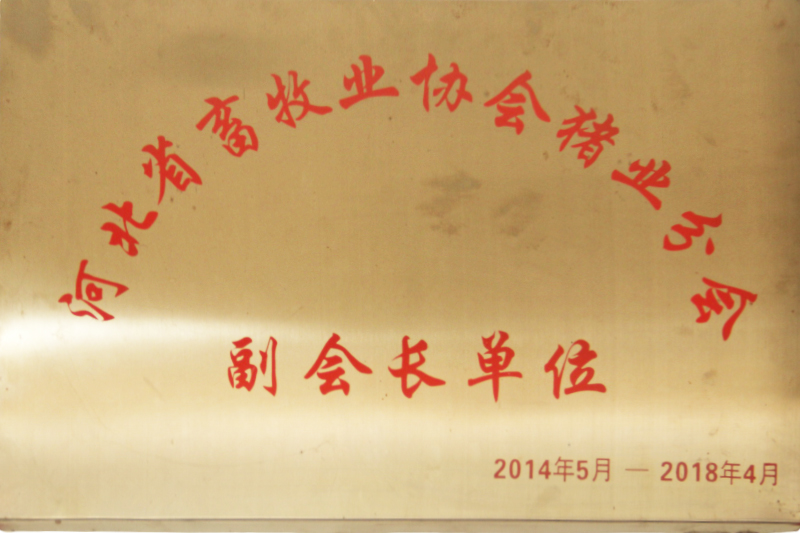 河北省畜牧业协会猪业分会
副会长单位
2014年5月 — 2018年4月